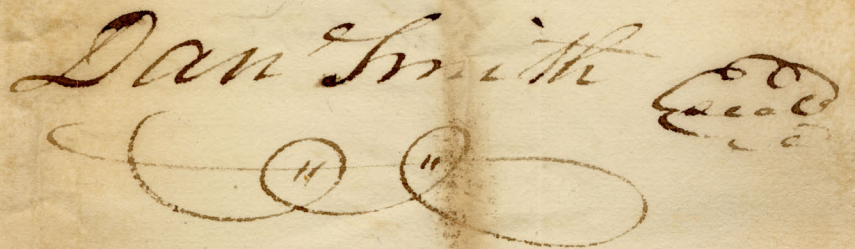 Danl Smith
Seal